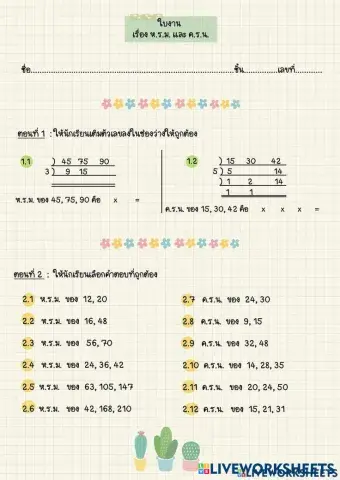 ใบงาน
เรื่อง ห.ร.ม. และ ค.ร.น.
ชื่อ........................................ชั้น............เลขที่............
ตอนที่ 1 : ให้นักเรียนเติมตัวเลขลงในช่องว่างให้ถูกต้อง
1.1 ) 45 75 90
3 ) 9 15
ห.ร.ม. ของ 45, 75, 90 คือ x =
1.2 ) 15 30 42
5 ) 5 14
) 1 2 14
1 1
ค.ร.น. ของ 15, 30, 42 คือ x x x =
ตอนที่ 2 : ให้นักเรียนเลือกคำตอบที่ถูกต้อง
2.1 ห.ร.ม. ของ 12, 20
2.2 ห.ร.ม. ของ 16, 48
2.3 ห.ร.ม. ของ 56, 70
2.4 ห.ร.ม. ของ 24, 36, 42
2.5 ห.ร.ม. ของ 63, 105, 147
2.6 ห.ร.ม. ของ 42, 168, 210
2.7 ค.ร.น. ของ 24, 30
2.8 ค.ร.น. ของ 9, 15
2.9 ค.ร.น. ของ 32, 48
2.10 ค.ร.น. ของ 14, 28, 35
2.11 ค.ร.น. ของ 20, 24, 50
2.12 ค.ร.น. ของ 15, 21, 31
LIVEWORKSHEETS
LIVEWORKSHEETS